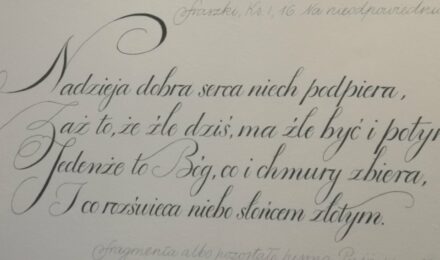 Fraszki, Ks I, 16 Na nieodpowiedni
Nadzieja dobra serca niech podpiera,
Zaż to, że źle dziś, ma źle być i potym
Jedenże to Bóg, co i chmury zbiera,
I co rozświeca niebo słońcem złotym.
fragmenta albo pozostałe pisma